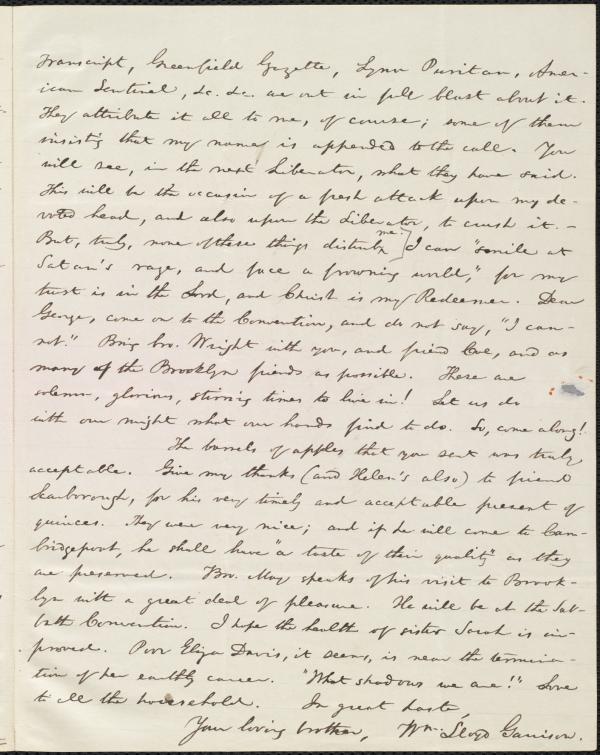 Transcript, Greenfield Gazette, Lynn Puritan, Amer-
ican Sentinel, &c. &c. are out in full blast about it.
They attribute it all to me, of course; some of them
insist'g that my name is appended to the call. You
will see, in the next Liberator, what they have said.
This will be the occasion of a fresh attack upon my de-
voted head, and also upon the Liberator, to crush it. —
But, truly, none of these things disturb me. I can "smile at
Satan's rage, and face a frowning world," for my
trust is in the Lord, and Christ is my Redeemer. Dear
George, come on to the Convention, and do not say, "I can-
not." Bring bro. Wright with you, and friend Coe, and as
many of the Brooklyn friends as possible. These are
solemn, glorious, stirring times to live in! Let us do
with our might what our hands find to do. So, come along!
The barrels of apples that you sent was truly
acceptable. Give my thanks (and Helen's also) to friend
Scarborough, for his very timely and acceptable present of
quinces. They were very nice; and if he will come to Cam-
bridgeport, he shall have "a taste of their quality" as they
are preserved. Bro. May speaks of his visit to Brook-
lyn with a great deal of pleasure. He will be at the Sab-
bath Convention. I hope the health of sister Sarah is im-
proved. Poor Eliza Davis, it seems, is near the termina-
tion of her earthly career. "What shadows we are!" Love
to all the household. In great haste,
Your loving brother, Wm. Lloyd Garrison.